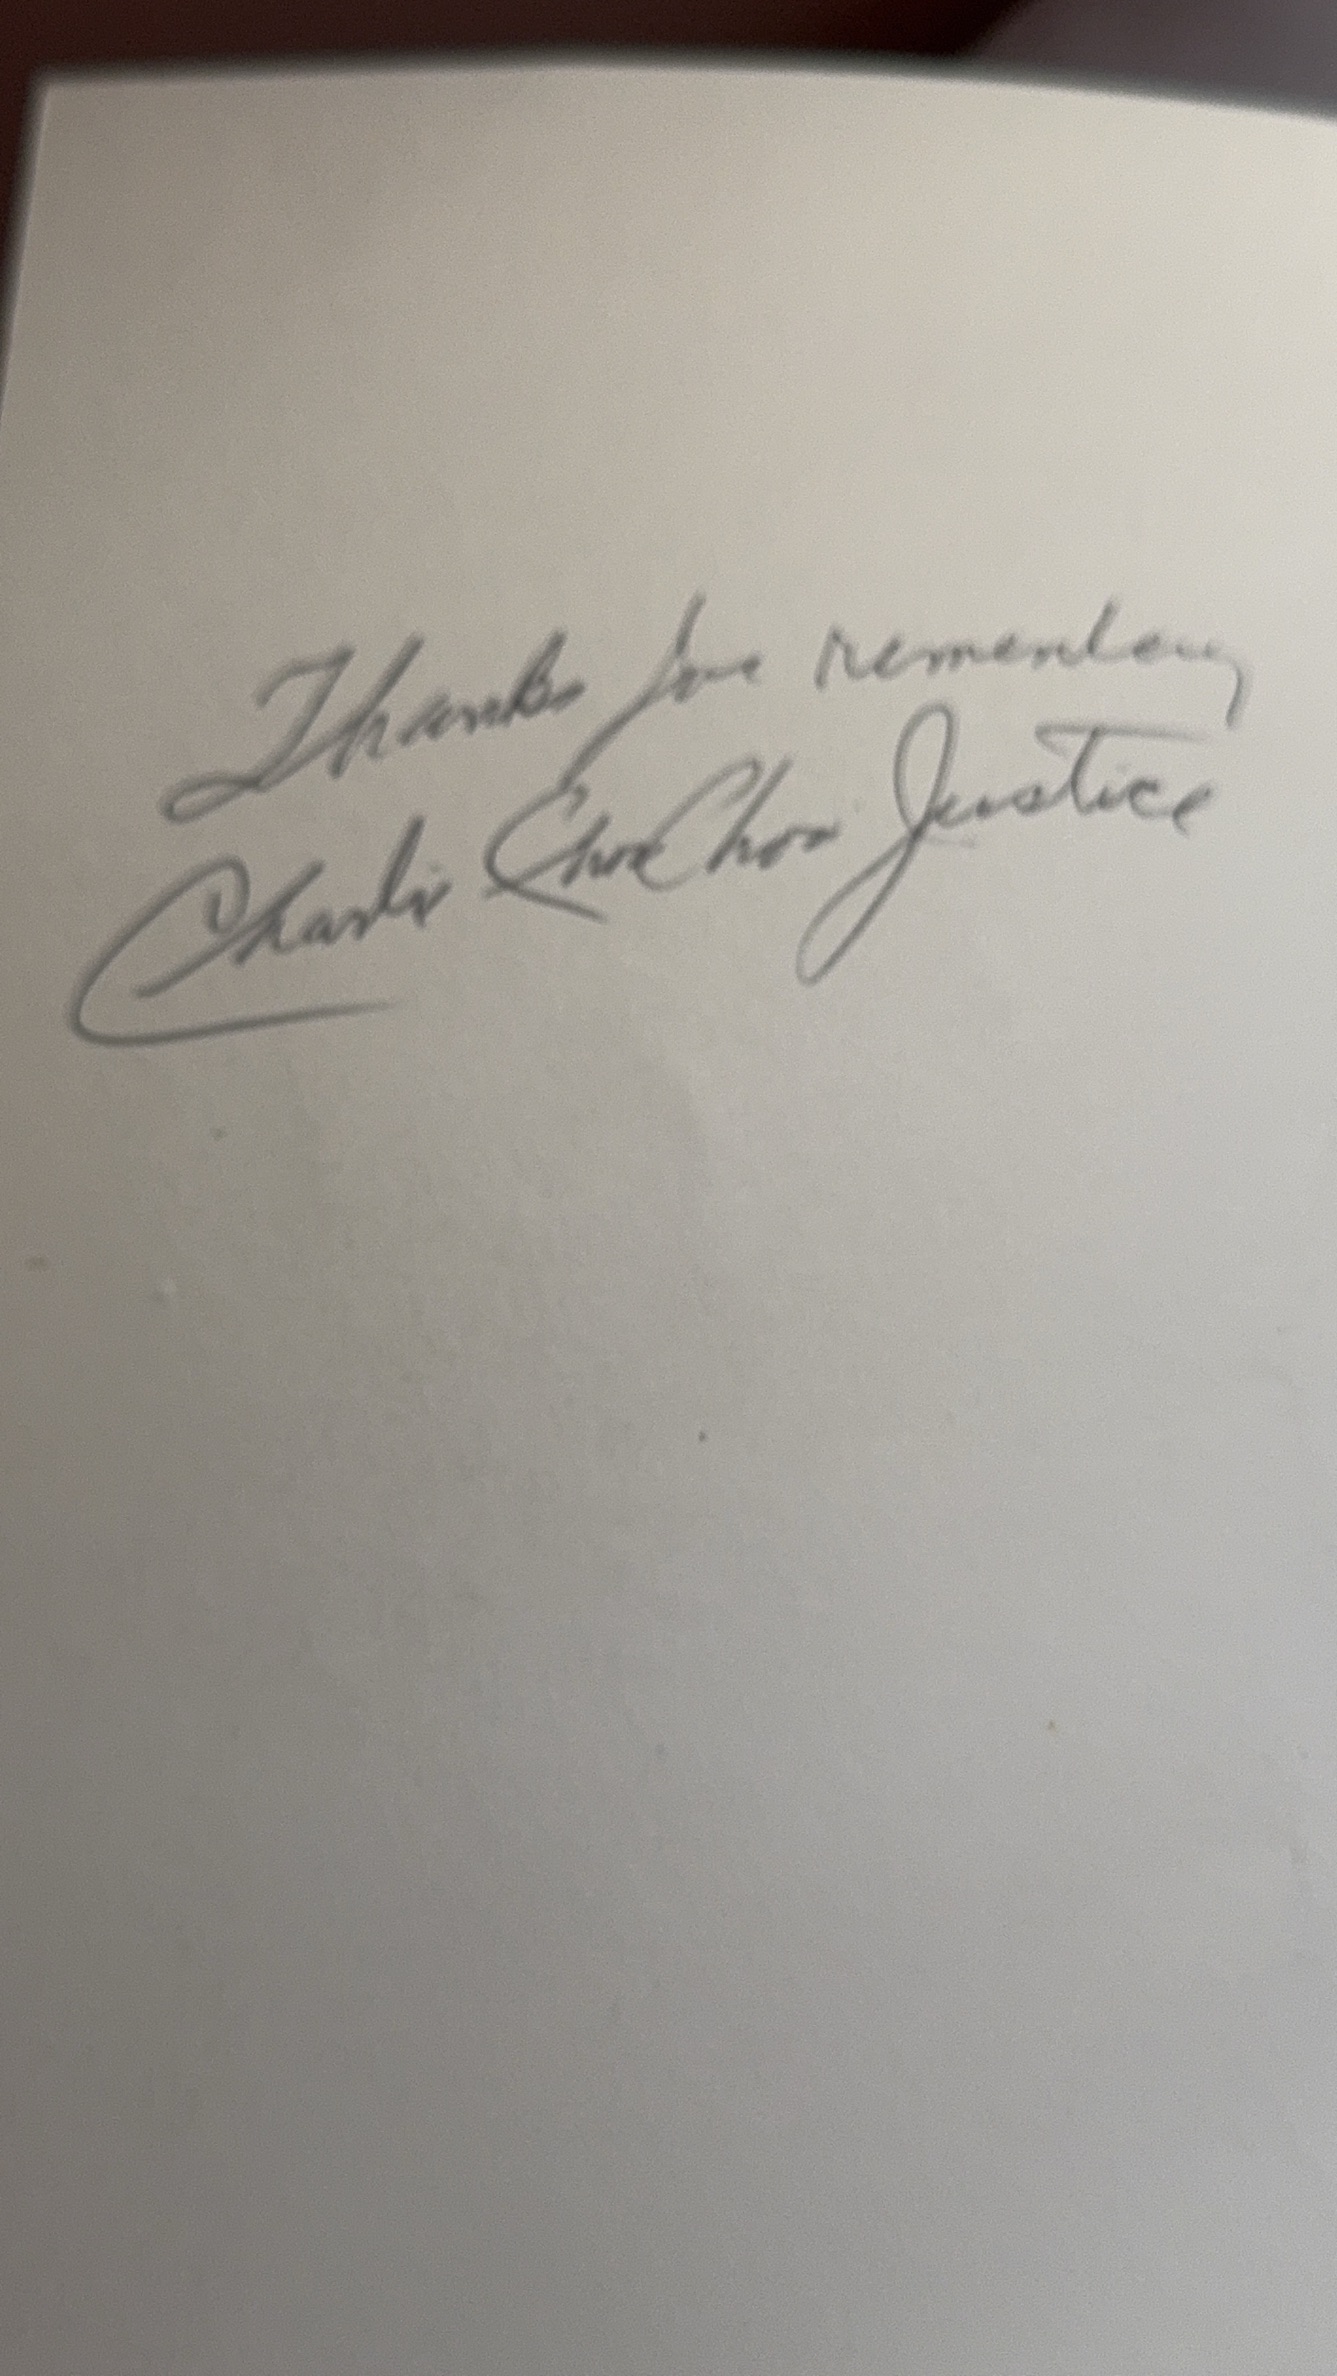 Thanks for remembering
Charlie Choo Choo Justice